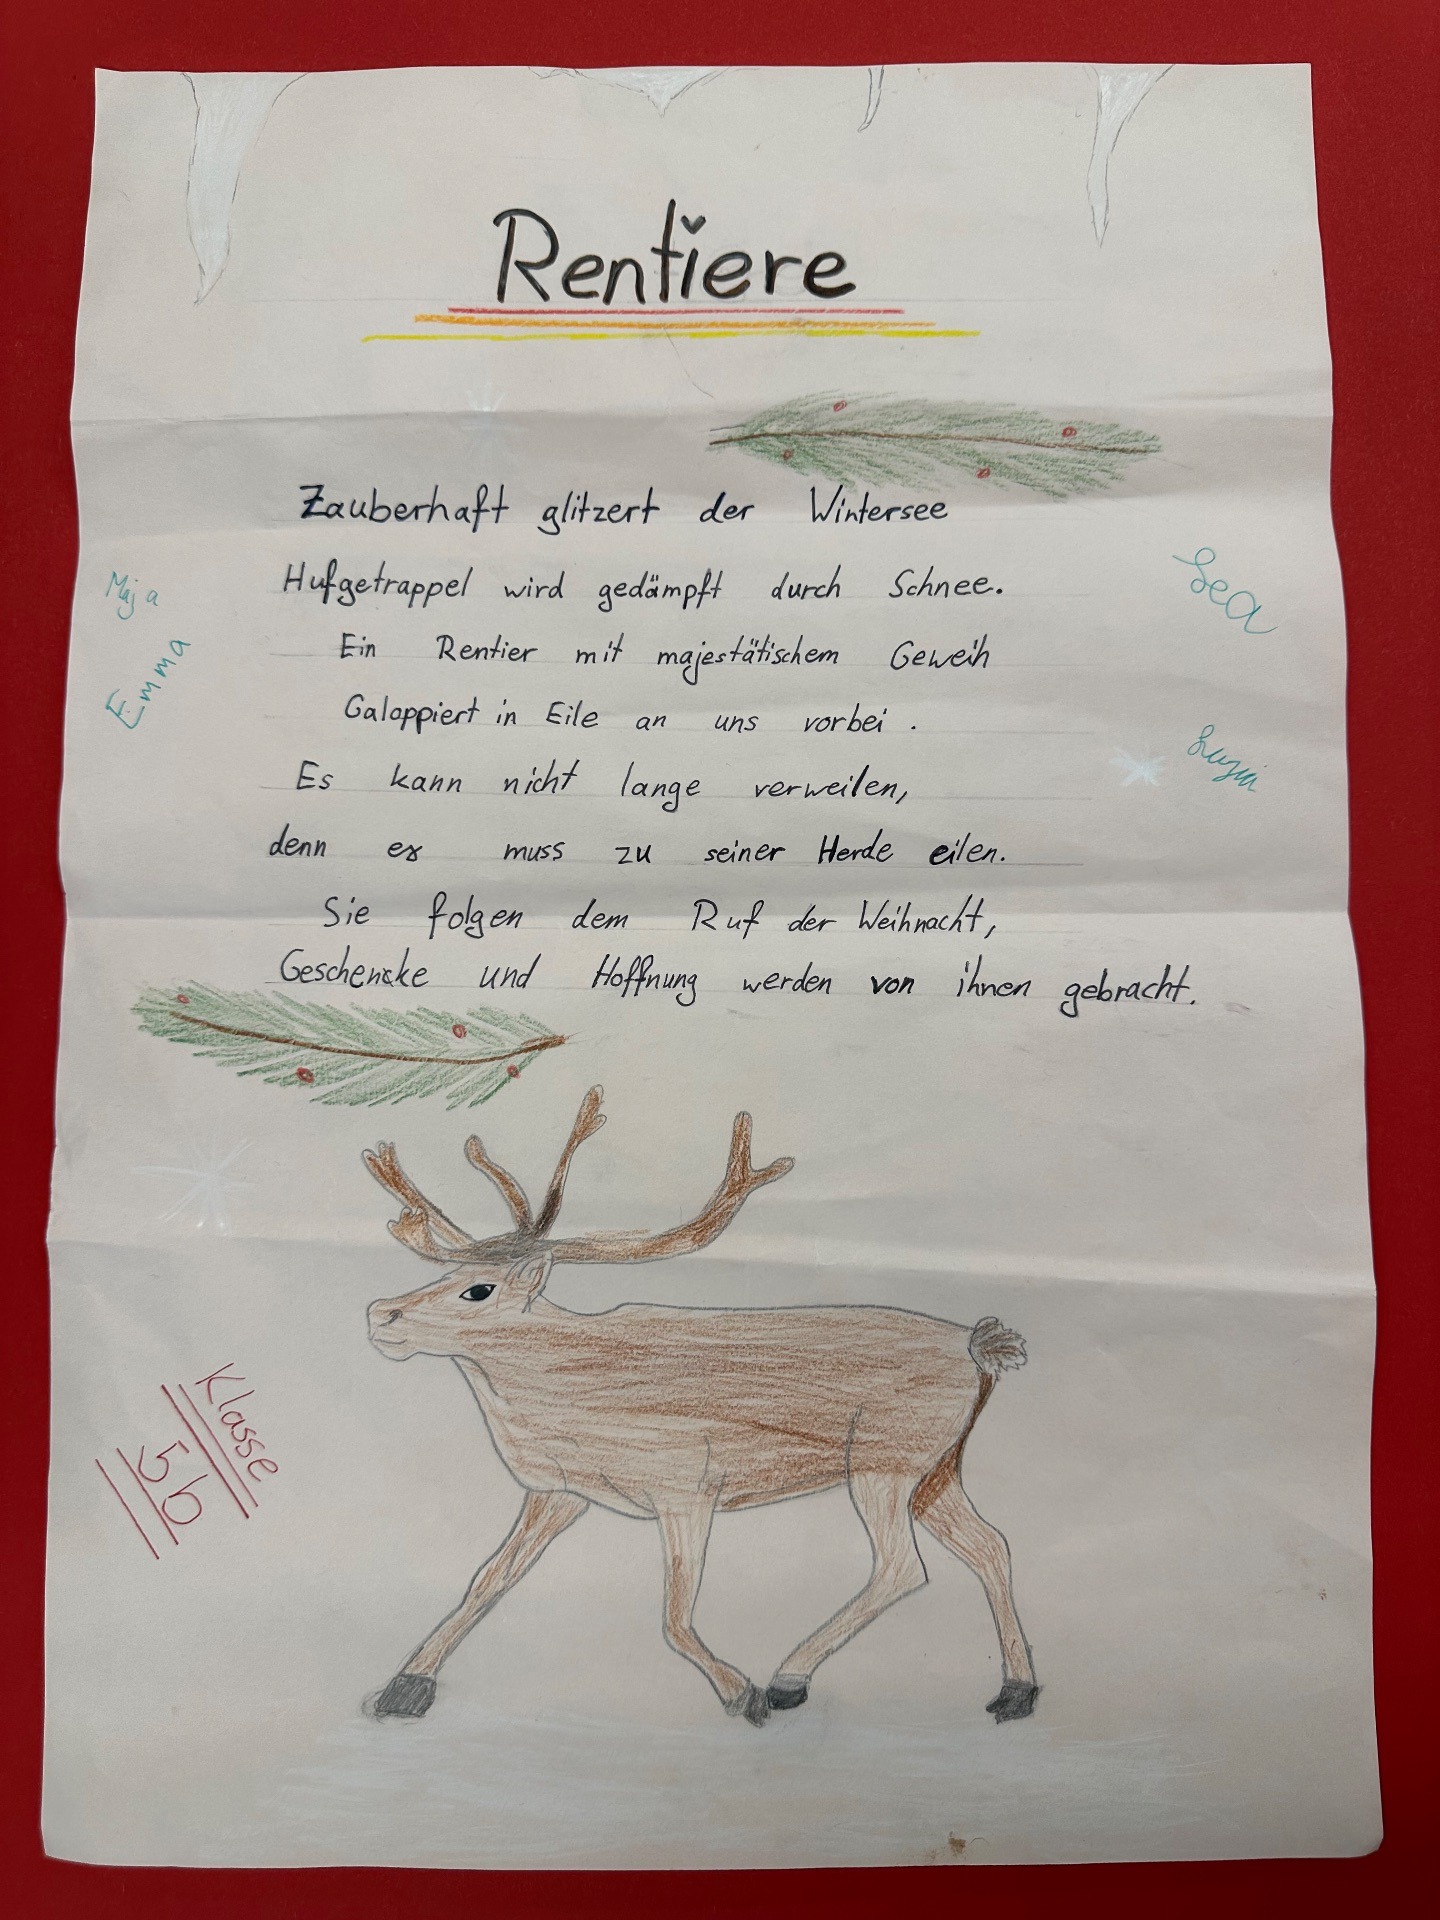 Rentiere
Zauberhaft glitzert der Wintersee
Hufgetrappel wird gedämpft durch Schnee.
Ein Rentier mit majestätischem Geweih
Galoppiert in Eile an uns vorbei.
Es kann nicht lange verweilen,
denn es muss zu seiner Herde eilen.
Sie folgen dem Ruf der Weihnacht,
Geschencke und Hoffnung werden von ihnen gebracht.
Maja
Emma
Lea
Luzia
Klasse
5b